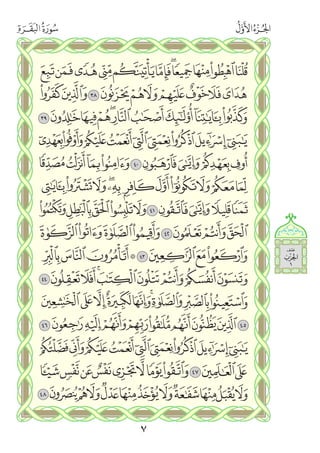 الجُزْءُ الأَوَّلُ
سُورَةُ البَقَرَةِ
قُلْنَا ٱهْبِطُوا۟ مِنْهَا جَمِيعًۭا ۖ فَإِمَّا يَأْتِيَنَّكُم مِّنِّى هُدًۭى فَمَن تَبِعَ
هُدَاىَ فَلَا خَوْفٌ عَلَيْهِمْ وَلَا هُمْ يَحْزَنُونَ ٣٨ وَٱلَّذِينَ كَفَرُوا۟
وَكَذَّبُوا۟ بِـَٔايَـٰتِنَآ أُو۟لَـٰٓئِكَ أَصْحَـٰبُ ٱلنَّارِ ۖ هُمْ فِيهَا خَـٰلِدُونَ ٣٩
يَـٰبَنِىٓ إِسْرَٰٓءِيلَ ٱذْكُرُوا۟ نِعْمَتِىَ ٱلَّتِىٓ أَنْعَمْتُ عَلَيْكُمْ وَأَوْفُوا۟ بِعَهْدِىٓ
أُوفِ بِعَهْدِكُمْ وَإِيَّـٰىَ فَٱرْهَبُونِ ٤٠ وَءَامِنُوا۟ بِمَآ أَنزَلْتُ مُصَدِّقًۭا
لِّمَا مَعَكُمْ وَلَا تَكُونُوٓا۟ أَوَّلَ كَافِرٍۭ بِهِۦ ۖ وَلَا تَشْتَرُوا۟ بِـَٔايَـٰتِى
ثَمَنًۭا قَلِيلًۭا وَإِيَّـٰىَ فَٱتَّقُونِ ٤١ وَلَا تَلْبِسُوا۟ ٱلْحَقَّ بِٱلْبَـٰطِلِ وَتَكْتُمُوا۟
ٱلْحَقَّ وَأَنتُمْ تَعْلَمُونَ ٤٢ وَأَقِيمُوا۟ ٱلصَّلَوٰةَ وَءَاتُوا۟ ٱلزَّكَوٰةَ
وَٱرْكَعُوا۟ مَعَ ٱلرَّٰكِعِينَ ٤٣ ۞ أَتَأْمُرُونَ ٱلنَّاسَ بِٱلْبِرِّ
وَتَنسَوْنَ أَنفُسَكُمْ وَأَنتُمْ تَتْلُونَ ٱلْكِتَـٰبَ ۚ أَفَلَا تَعْقِلُونَ ٤٤
وَٱسْتَعِينُوا۟ بِٱلصَّبْرِ وَٱلصَّلَوٰةِ ۚ وَإِنَّهَا لَكَبِيرَةٌ إِلَّا عَلَى ٱلْخَـٰشِعِينَ
٤٥ ٱلَّذِينَ يَظُنُّونَ أَنَّهُم مُّلَـٰقُوا۟ رَبِّهِمْ وَأَنَّهُمْ إِلَيْهِ رَٰجِعُونَ ٤٦
يَـٰبَنِىٓ إِسْرَٰٓءِيلَ ٱذْكُرُوا۟ نِعْمَتِىَ ٱلَّتِىٓ أَنْعَمْتُ عَلَيْكُمْ وَأَنِّى فَضَّلْتُكُمْ
عَلَى ٱلْعَـٰلَمِينَ ٤٧ وَٱتَّقُوا۟ يَوْمًۭا لَّا تَجْزِى نَفْسٌ عَن نَّفْسٍۢ شَيْـًۭٔا
وَلَا يُقْبَلُ مِنْهَا شَفَـٰعَةٌۭ وَلَا يُؤْخَذُ مِنْهَا عَدْلٌۭ وَلَا هُمْ يُنصَرُونَ ٤٨
٧